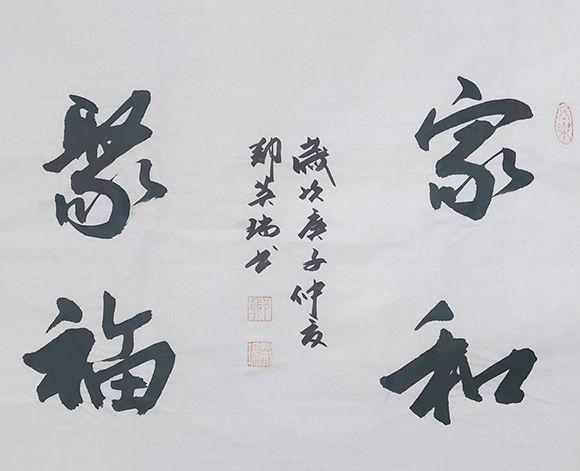 家和
歲次庚子仲夏
英瑞书
聚福